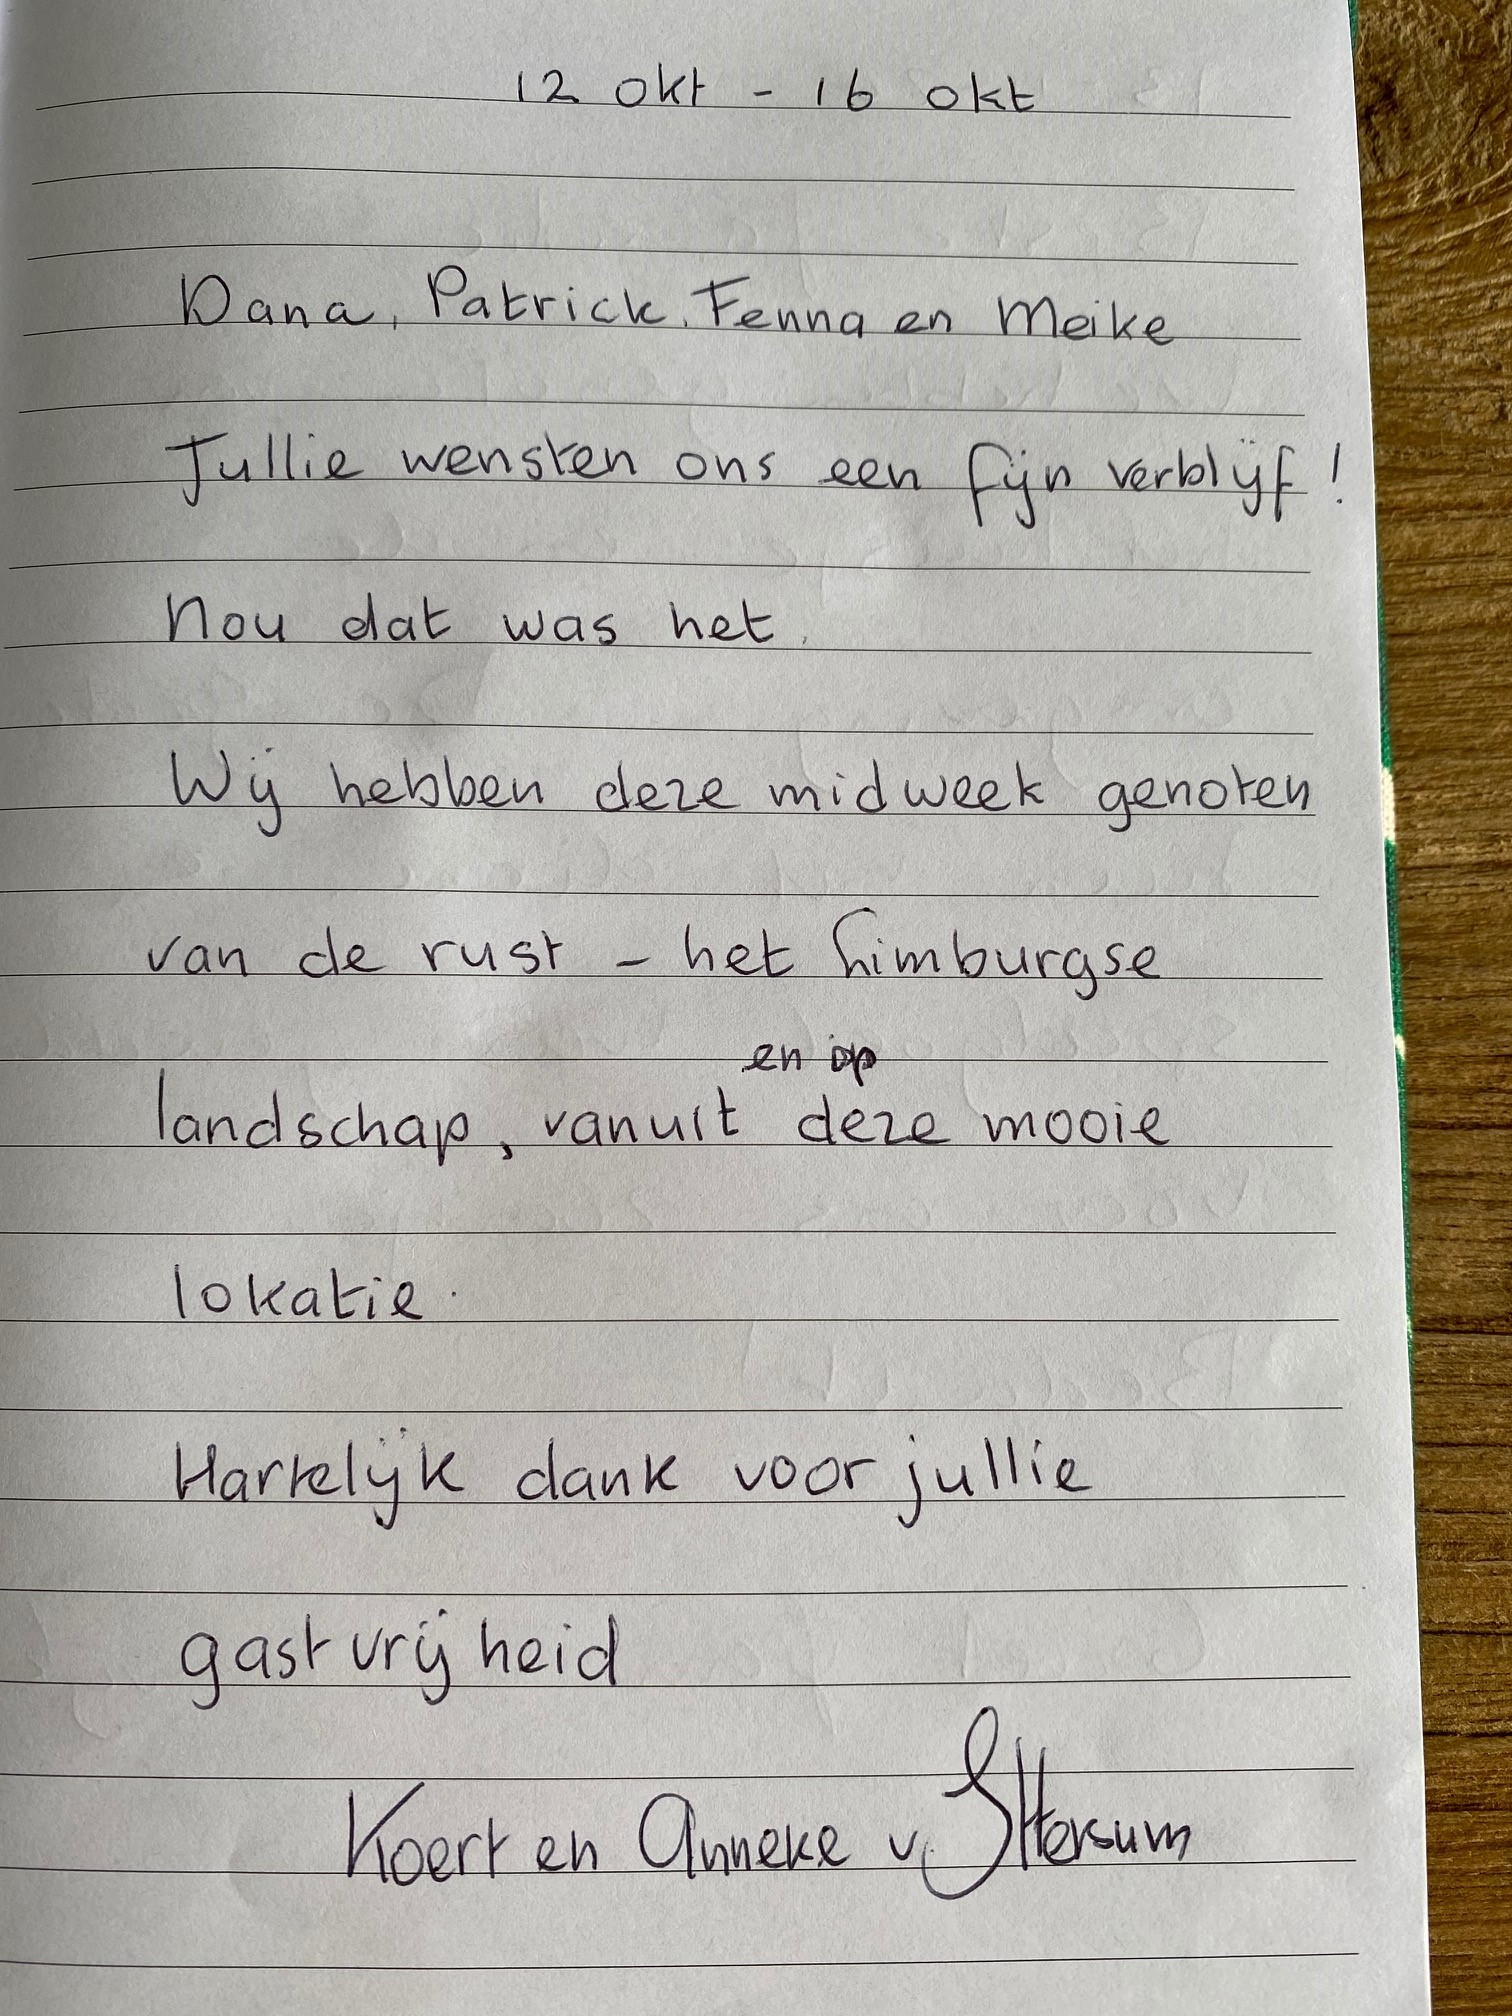 12 okt - 16 okt
Dana, Patrick, Fenna en Meike
Jullie wensten ons een fijn verblijf!
Nou dat was het.
Wij hebben deze midweek genoten
van de rust - het Limburgse
en op
landschap, vanuit deze mooie
lokatie.
Hartelijk dank voor jullie
gastvrijheid
Koert en Anneke v. Ittersum